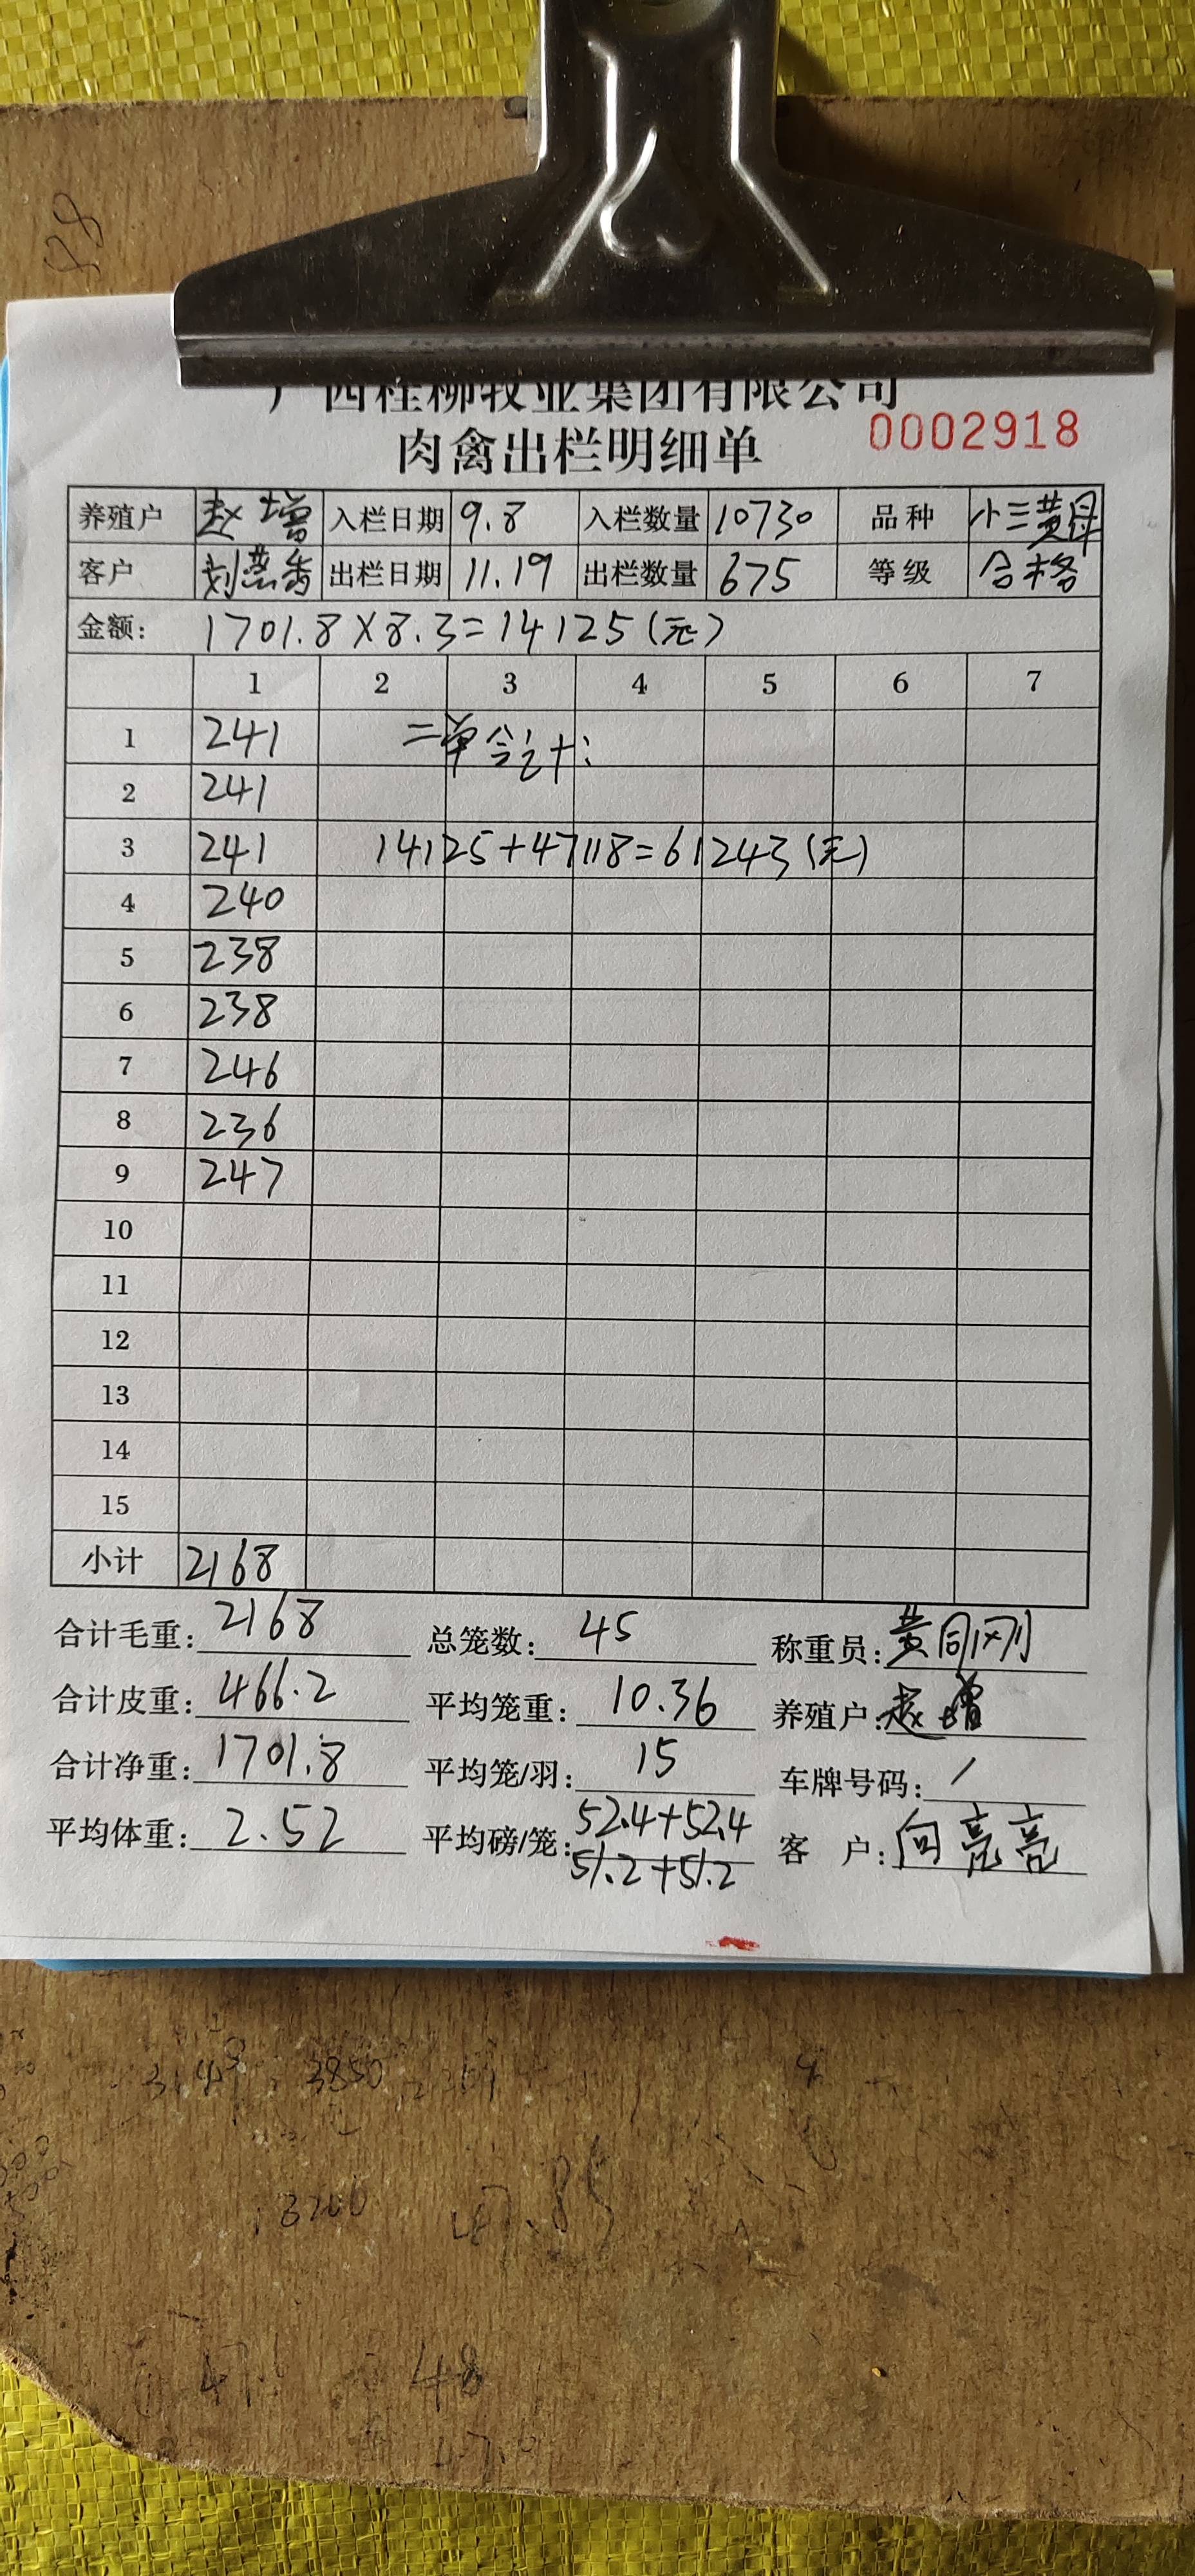 广西桂柳牧业集团有限公司
肉禽出栏明细单 0002918
养殖户 赵增 入栏日期 9.8 入栏数量 10730 品种 小三黄母
客户 刘燕香 出栏日期 11.19 出栏数量 675 等级 合格
金额: 1701.8×8.3=14125(元)
1 2 3 4 5 6 7
1 241 二单合计:
2 241
3 241 14125+47118=61243(元)
4 240
5 238
6 238
7 246
8 236
9 247
10
11
12
13
14
15
小计 2168
合计毛重: 2168 总笼数: 45 称重员: 黄刚刚
合计皮重: 466.2 平均笼重: 10.36 养殖户: 赵增
合计净重: 1701.8 平均笼/羽: 15 车牌号码: /
平均体重: 2.52 平均磅/笼: 52.4+52.4 客 户: 向亮亮
51.2+51.2
3850
3200
47.85
48